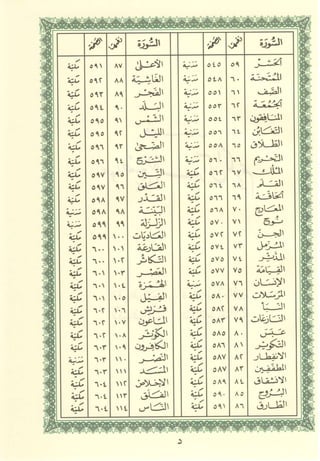 السورة رقمها الصفحة السورة رقمها الصفحة
الحشر ٥٩ ٥٤٥ مدنية الأعلى ٨٧ ٥٩١ مكية
الممتحنة ٦٠ ٥٤٨ مدنية الغاشية ٨٨ ٥٩٢ مكية
الصف ٦١ ٥٥١ مدنية الفجر ٨٩ ٥٩٣ مكية
الجمعة ٦٢ ٥٥٣ مدنية البلد ٩٠ ٥٩٤ مكية
المنافقون ٦٣ ٥٥٤ مدنية الشمس ٩١ ٥٩٥ مكية
التغابن ٦٤ ٥٥٦ مدنية الليل ٩٢ ٥٩٥ مكية
الطلاق ٦٥ ٥٥٨ مدنية الضحى ٩٣ ٥٩٦ مكية
التحريم ٦٦ ٥٦٠ مدنية الشرح ٩٤ ٥٩٦ مكية
الملك ٦٧ ٥٦٢ مكية التين ٩٥ ٥٩٧ مكية
القلم ٦٨ ٥٦٤ مكية العلق ٩٦ ٥٩٧ مكية
الحاقة ٦٩ ٥٦٦ مكية القدر ٩٧ ٥٩٨ مكية
المعارج ٧٠ ٥٦٨ مكية البينة ٩٨ ٥٩٨ مدنية
نوح ٧١ ٥٧٠ مكية الزلزلة ٩٩ ٥٩٩ مدنية
الجن ٧٢ ٥٧٢ مكية العاديات ١٠٠ ٥٩٩ مكية
المزمل ٧٣ ٥٧٤ مكية القارعة ١٠١ ٦٠٠ مكية
المدثر ٧٤ ٥٧٥ مكية التكاثر ١٠٢ ٦٠٠ مكية
القيامة ٧٥ ٥٧٧ مكية العصر ١٠٣ ٦٠١ مكية
الإنسان ٧٦ ٥٧٨ مدنية الهمزة ١٠٤ ٦٠١ مكية
المرسلات ٧٧ ٥٨٠ مكية الفيل ١٠٥ ٦٠١ مكية
النبأ ٧٨ ٥٨٢ مكية قريش ١٠٦ ٦٠٢ مكية
النازعات ٧٩ ٥٨٣ مكية الماعون ١٠٧ ٦٠٢ مكية
عبس ٨٠ ٥٨٥ مكية الكوثر ١٠٨ ٦٠٢ مكية
التكوير ٨١ ٥٨٦ مكية الكافرون ١٠٩ ٦٠٣ مكية
الانفطار ٨٢ ٥٨٧ مكية النصر ١١٠ ٦٠٣ مدنية
المطففين ٨٣ ٥٨٧ مكية المسد ١١١ ٦٠٣ مكية
الانشقاق ٨٤ ٥٨٩ مكية الإخلاص ١١٢ ٦٠٤ مكية
البروج ٨٥ ٥٩٠ مكية الفلق ١١٣ ٦٠٤ مكية
الطارق ٨٦ ٥٩١ مكية الناس ١١٤ ٦٠٤ مكية
٥